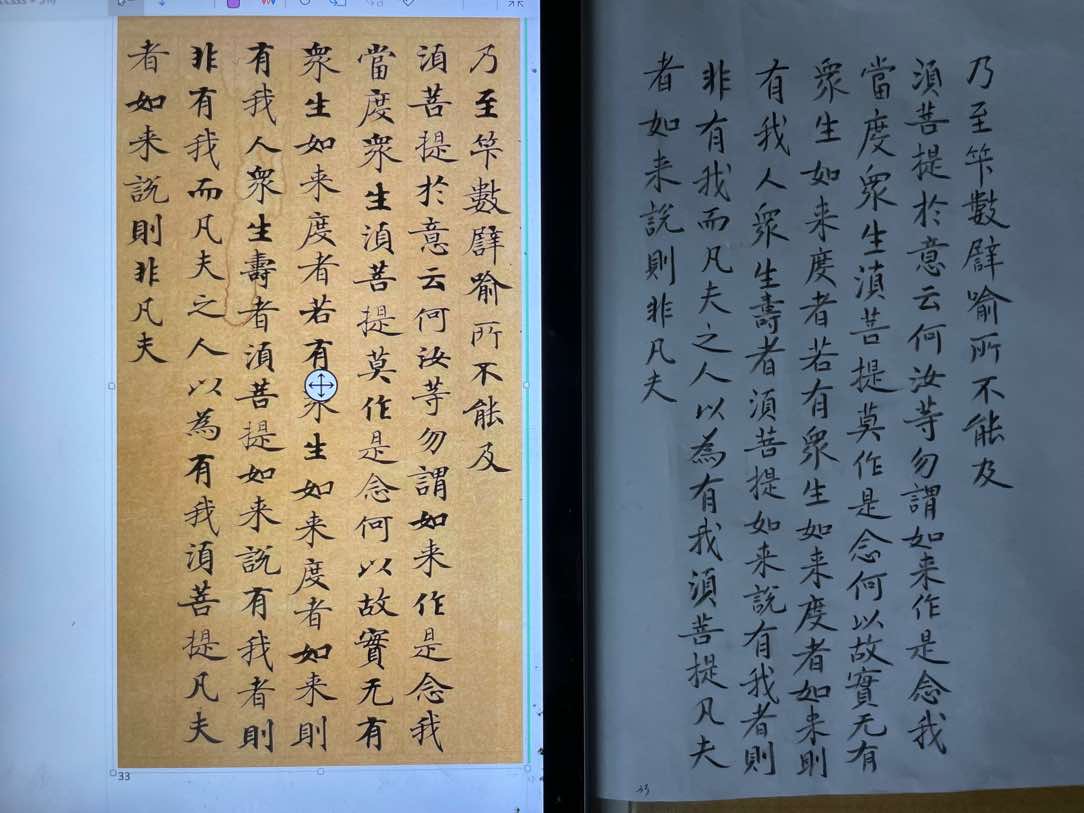 乃至筭數譬喻所不能及
湏菩提於意云何汝等勿謂如来作是念我
當度衆生湏菩提莫作是念何以故實无有
衆生如来度者若有衆生如来度者如来則
有我人衆生壽者湏菩提如来説有我者則
非有我而凡夫之人以為有我湏菩提凡夫
者如来説則非凡夫
33
乃至筭數譬喻所不能及
湏菩提於意云何汝等勿謂如来作是念我
當度衆生湏菩提莫作是念何以故實无有
衆生如来度者若有衆生如来度者如来則
有我人衆生壽者湏菩提如来説有我者則
非有我而凡夫之人以為有我湏菩提凡夫
者如来説則非凡夫
33